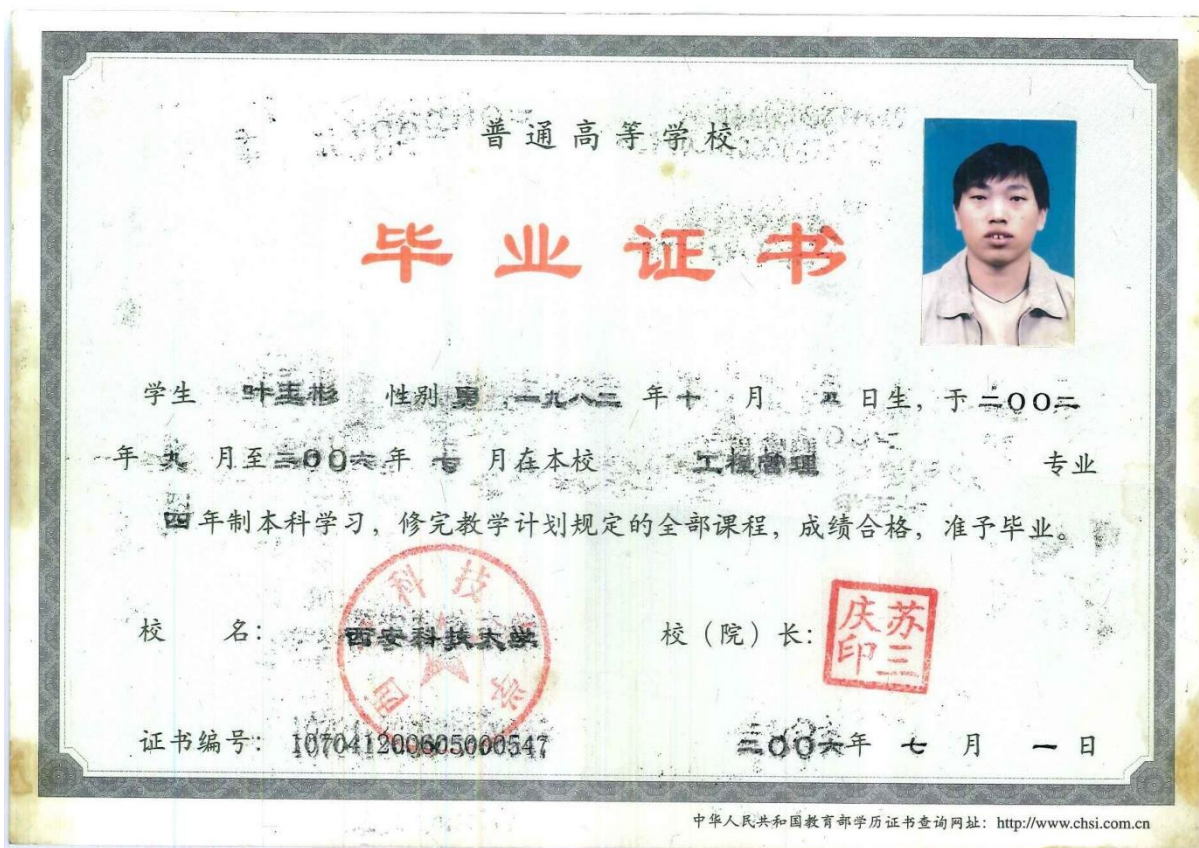 普通高等学校
毕业证书
学生 叶玉彬 性别 男，一九八二年十月 五日生，于二〇〇二
年九月至二〇〇六年七月在本校 工程管理 专业
四年制本科学习，修完教学计划规定的全部课程，成绩合格，准予毕业。
校 名： 西安科技大学 校（院）长： 苏三庆印
证书编号： 107041200605000547 二〇〇六年七月一日
中华人民共和国教育部学历证书查询网址：http://www.chsi.com.cn